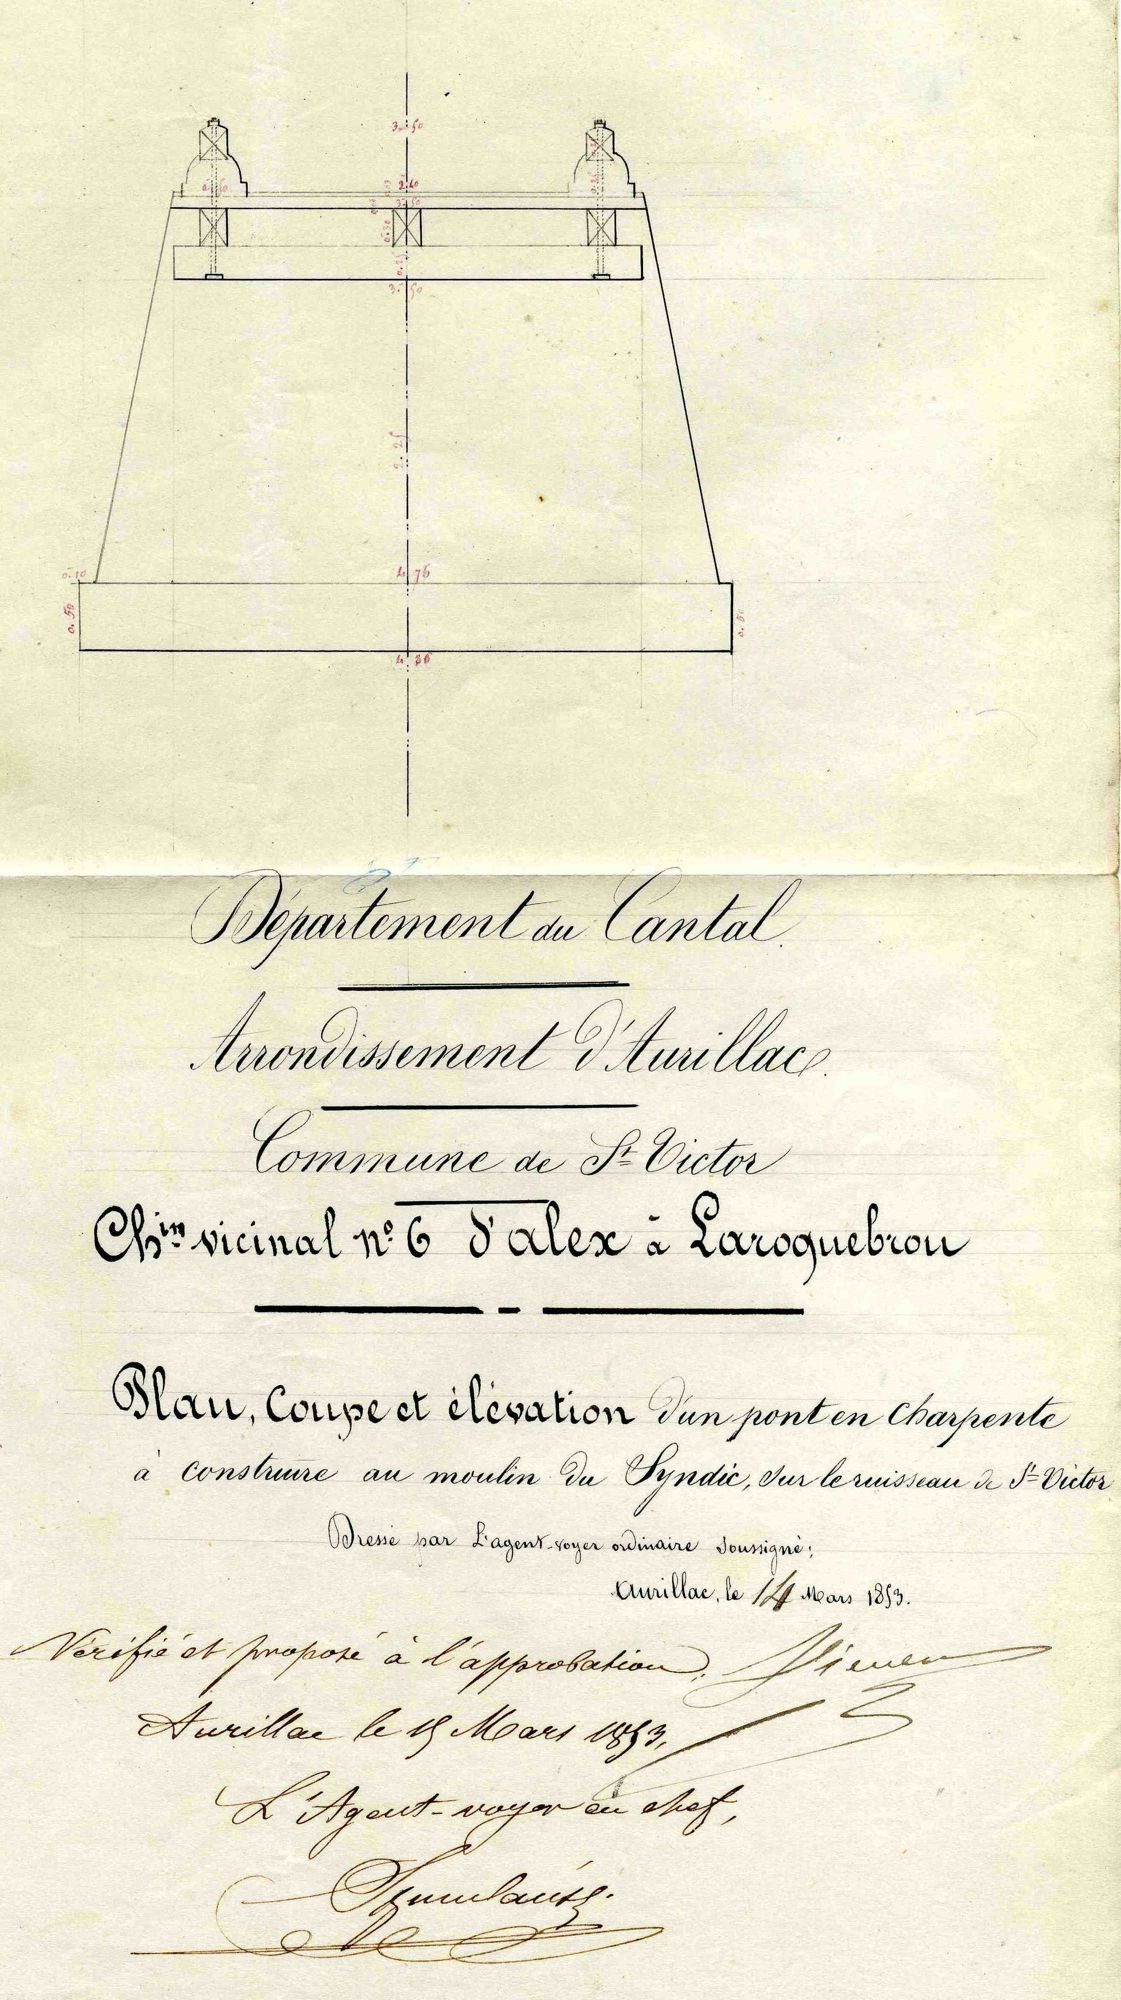 3.50
2.40
3.50
0.25
3.50
2.25
0.10
4.76
0.50
0.50
4.96
Département du Cantal.
Arrondissement d'Aurillac.
Commune de St Victor
Chin vicinal no 6 d'alex à Laroquebrou
Plan, Coupe et élévation d'un pont en Charpente
à construire au moulin du Syndic, sur le ruisseau de St Victor
Dressé par L'agent-voyer ordinaire soussigné;
Aurillac, le 14 Mars 1853.
Vérifié et proposé à l'approbation.
Aurillac le 15 Mars 1853.
L'Agent-voyer en chef,